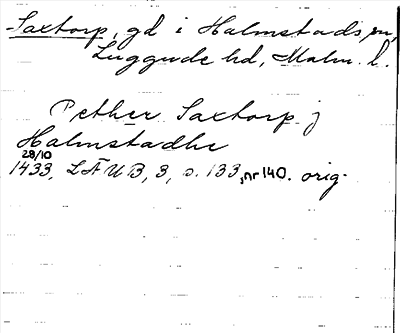 Saxtorp, gd i Halmstads sn,
Luggude hd, Malm. l.
Pether Saxtorp j
Halmstadhe
28/10
1433, LÄUB, 3, s. 133, nr 140. orig.